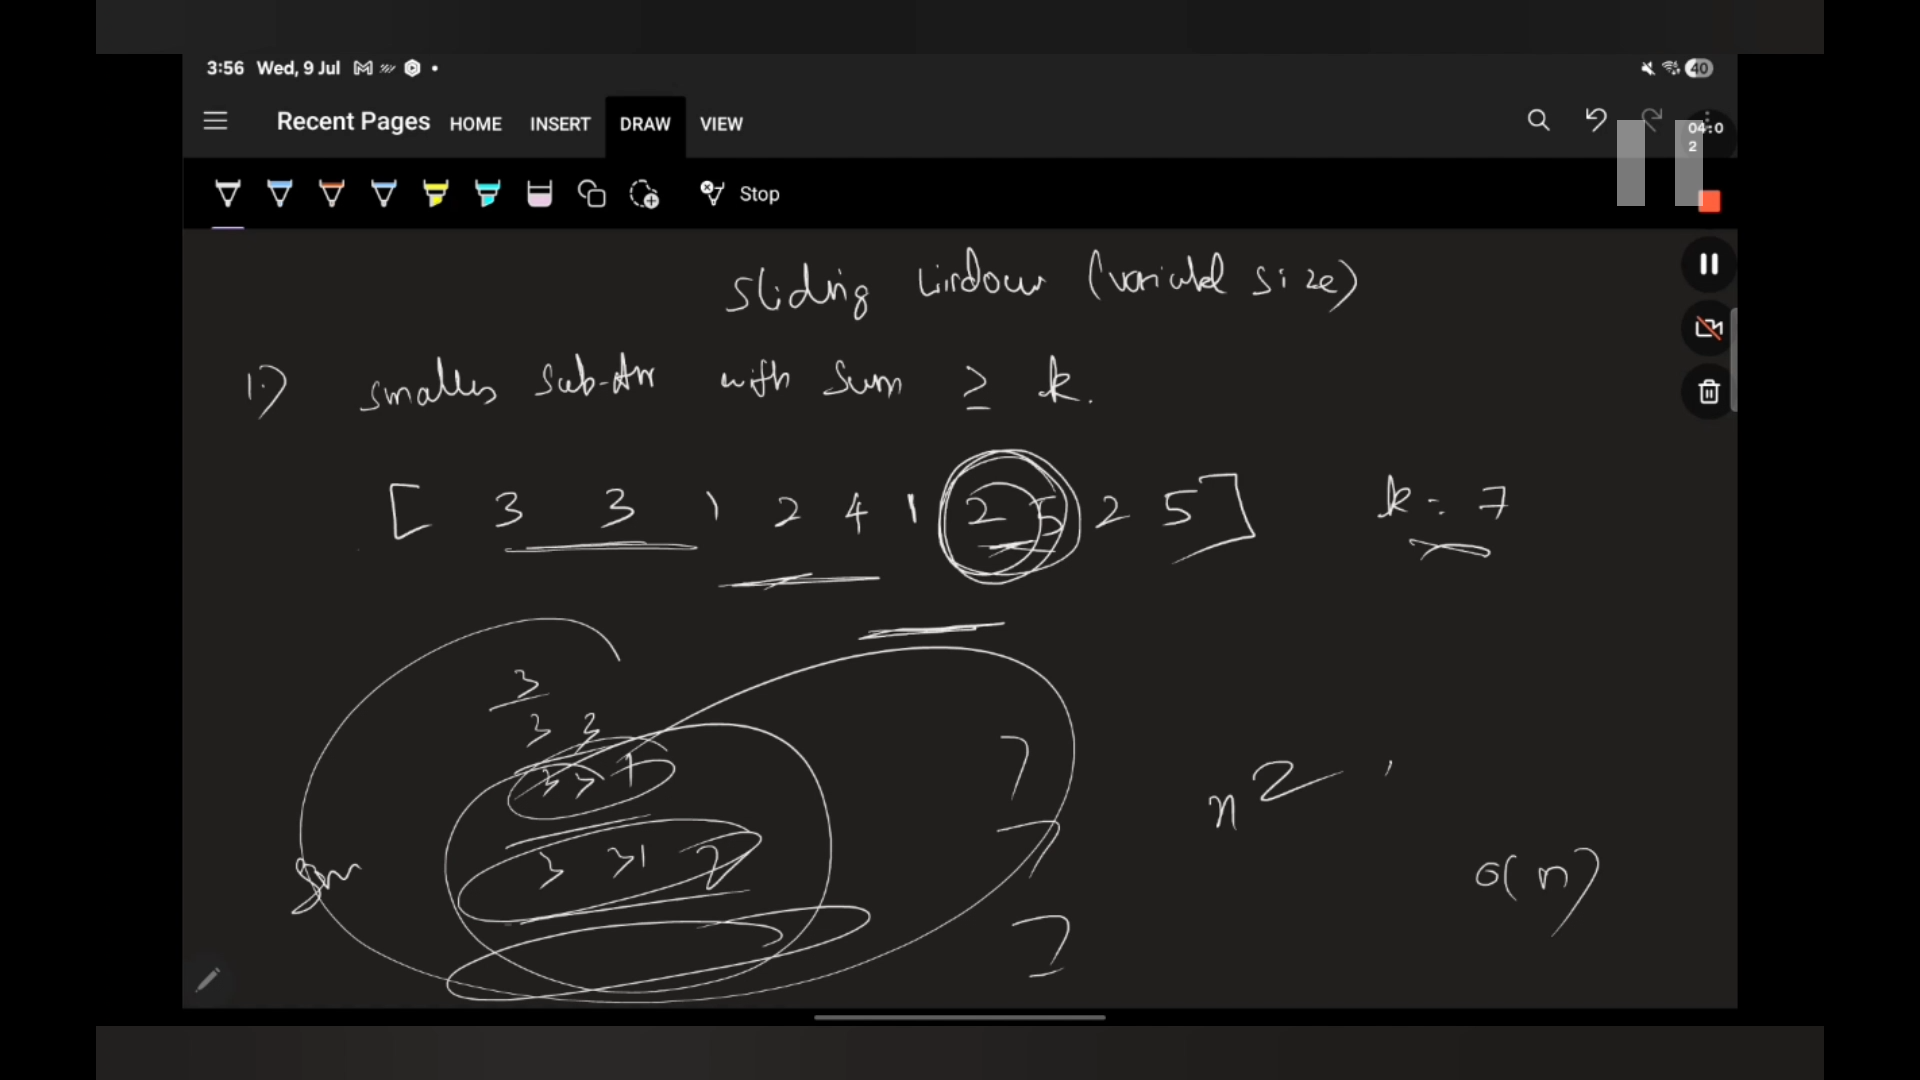 3:56 Wed, 9 Jul 40
Recent Pages HOME INSERT DRAW VIEW
04:0
2
Stop
Sliding Window (variabl size)
1.) smalles Sub-Arr with Sum ≥ k.
[ 3 3 1 2 4 1 2 5 2 5 ] k = 7
3
3 3
3 3 1 7
n 2
3 3 1 2 7
O(n)
7